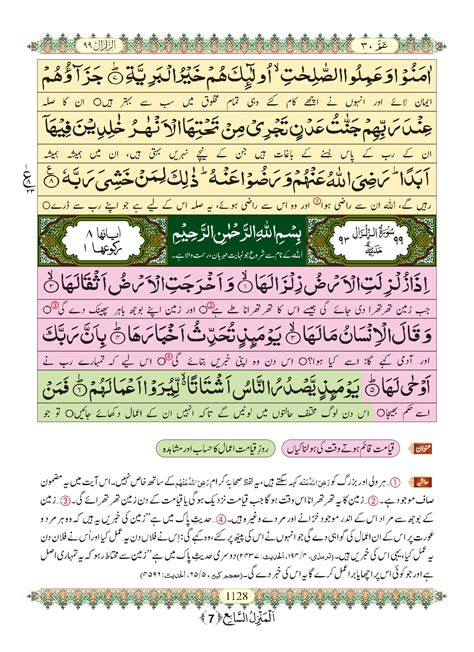 عَمَّ ٣٠
الزلزال ٩٩
اٰمَنُوْا وَعَمِلُوا الصّٰلِحٰتِۙ اُولٰٓىِٕكَ هُمْ خَيْرُ الْبَرِيَّةِؕ۝۷ جَزَآؤُهُمْ
ایمان لائے اور انہوں نے اچھے کام کئے وہی تمام مخلوق میں سب سے بہتر ہیں○ ان کا صلہ
عِنْدَ رَبِّهِمْ جَنّٰتُ عَدْنٍ تَجْرِيْ مِنْ تَحْتِهَا الْاَنْهٰرُ خٰلِدِيْنَ فِيْهَاۤ
ان کے رب کے پاس بسنے کے باغات ہیں جن کے نیچے نہریں بہتی ہیں، ان میں ہمیشہ ہمیشہ
اَبَدًاؕ رَضِيَ اللّٰهُ عَنْهُمْ وَرَضُوْا عَنْهُؕ ذٰلِكَ لِمَنْ خَشِيَ رَبَّهٗ۝۸
رہیں گے، اللہ ان سے راضی ہوا① اور وہ اس سے راضی ہوئے، یہ صلہ اس کے لیے ہے جو اپنے رب سے ڈرے○
اٰیاتها ۸
ركوعها ۱
بِسْمِ اللّٰهِ الرَّحْمٰنِ الرَّحِيْمِ
اللہ کے نام سے شروع جو نہایت مہربان، رحمت والا ہے۔
٩٩ سُوْرَةُ الزِّلْزَال مَدَنِيَّةٌ ٩٣
اِذَا زُلْزِلَتِ الْاَرْضُ زِلْزَالَهَاۙ۝۱ وَاَخْرَجَتِ الْاَرْضُ اَثْقَالَهَاۙ۝۲
جب زمین تھرتھرا دی جائے گی جیسے اس کا تھرتھرانا طے ہے②○ اور زمین اپنے بوجھ باہر پھینک دے گی③○
وَقَالَ الْاِنْسَانُ مَا لَهَاۚ۝۳ يَوْمَىِٕذٍ تُحَدِّثُ اَخْبَارَهَاۙ۝۴ بِاَنَّ رَبَّكَ
اور آدمی کہے گا: اسے کیا ہوا؟○ اس دن وہ اپنی خبریں بتائے گی④○ اس لیے کہ تمہارے رب نے
اَوْحٰى لَهَاؕ۝۵ يَوْمَىِٕذٍ يَّصْدُرُ النَّاسُ اَشْتَاتًا۬ۙ لِّيُرَوْا اَعْمَالَهُمْؕ۝۶ فَمَنْ
اسے حکم بھیجا○ اس دن لوگ مختلف حالتوں میں لوٹیں گے تاکہ انہیں ان کے اعمال دکھائے جائیں○ تو جو
عنوان
قیامت قائم ہوتے وقت کی ہولناکیاں
روزِ قیامت اعمال کا حساب اور مشاہدہ
حاشیہ ①۔ ہر ولی اور بزرگ کو رَضِيَ اللّٰهُ عَنْهُ کہہ سکتے ہیں، یہ لفظ صحابۂ کرام رَضِيَ اللّٰهُ عَنْهُمْ کے ساتھ خاص نہیں۔ اس آیت میں یہ مضمون
صاف موجود ہے۔ ②۔ زمین کا یہ تھرتھرانا اس وقت ہوگا جب قیامت نزدیک ہوگی یا قیامت کے دن زمین تھرتھرائے گی۔ ③۔ زمین
کے بوجھ سے مراد اس کے اندر موجود خزانے اور مردے وغیرہ ہیں۔ ④۔ حدیثِ پاک میں ہے "زمین کی خبریں یہ ہیں کہ وہ ہر مرد و
عورت پر اس کے ان اعمال کی گواہی دے گی جو انہوں نے اس کی پیٹھ پر کئے، وہ کہے گی: اِس نے فلاں دن یہ عمل کیا اور اُس نے فلاں دن
یہ عمل کیا، یہی اس کی خبریں ہیں۔ (ترمذی، ۴/۱۹۴، الحدیث: ۲۴۳۷) دوسری حدیثِ پاک میں ہے "زمین سے محتاط رہو کہ یہ تمہاری اصل
ہے اور جو کوئی اس پر اچھا یا برا عمل کرے گا یہ اس کی خبر دے گی۔ (معجم کبیر، ۵/۶۵، الحدیث: ۴۵۹۶)
1128
اَلْمَنْزِلُ السَّابِع ﴿ 7 ﴾